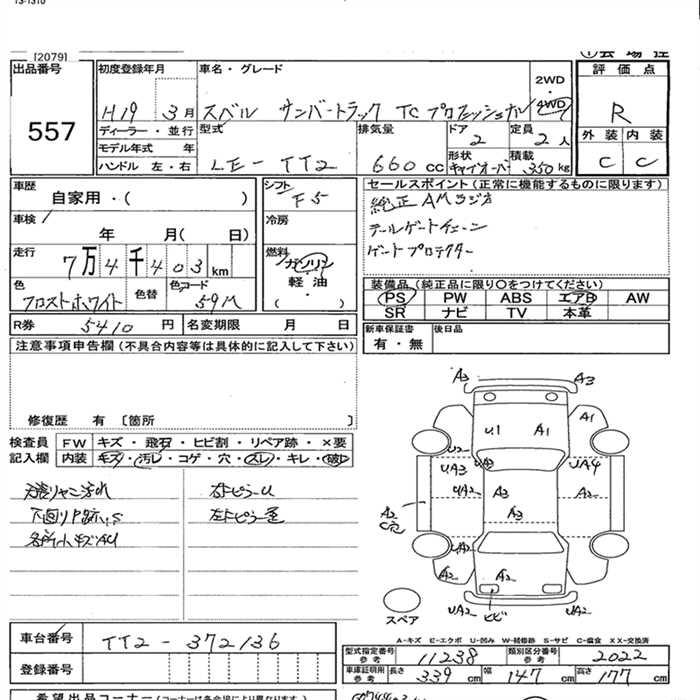 [2079]
出品番号
557
初度登録年月
H19 3月
ディーラー・並行
モデル年式 年
ハンドル 左・右
車名・グレード
スバル サンバートラック TC プロフェッショナル
2WD
・
4WD
型式
LE-TT2
排気量
660 cc
ドア
2
定員
2人
形状
キャブオーバー
積載
350kg
評価点
R
外装 内装
C C
車歴
自家用・( )
車検
年 月( 日)
走行
7万4千403km
色
フロストホワイト
色替
色コード
59M
シフト
F5
冷房
燃料
ガソリン
軽・油
( ・ )
セールスポイント(正常に機能するものに限ります)
純正AMラジオ
テールゲートチェーン
ゲートプロテクター
装備品(純正品に限り〇をつけてください)
PS PW ABS エアB AW
SR ナビ TV 本革
R券 5410円
名変期限 月 日
新車保証書
有・無
後日品
注意事項申告欄(不具合内容等は具体的に記入して下さい)
修復歴 有 [箇所 ]
検査員
記入欄
FW キズ・飛石・ヒビ割・リペア跡・×要
内装 キズ・汚レ・コゲ・穴・スレ・キレ・破レ
下廻りP跡、S
各所小キズAU
右Fピラーu
A3 A3
U1 A1 A1
UA3 UA4
A3 A2
A3
A2
C穴
A2 A2 A2
UA2 ヒビ UA2
スペア
A-キズ E-エクボ U-凹み W-補修跡 S-サビ C-腐食 XX-交換済
車台番号
TT2-372136
登録番号
型式指定番号
参考
11238
類別区分番号
参考
2022
車庫証明用
参考
長さ 339 cm 幅 147 cm 高さ 177 cm
希望出品コーナー